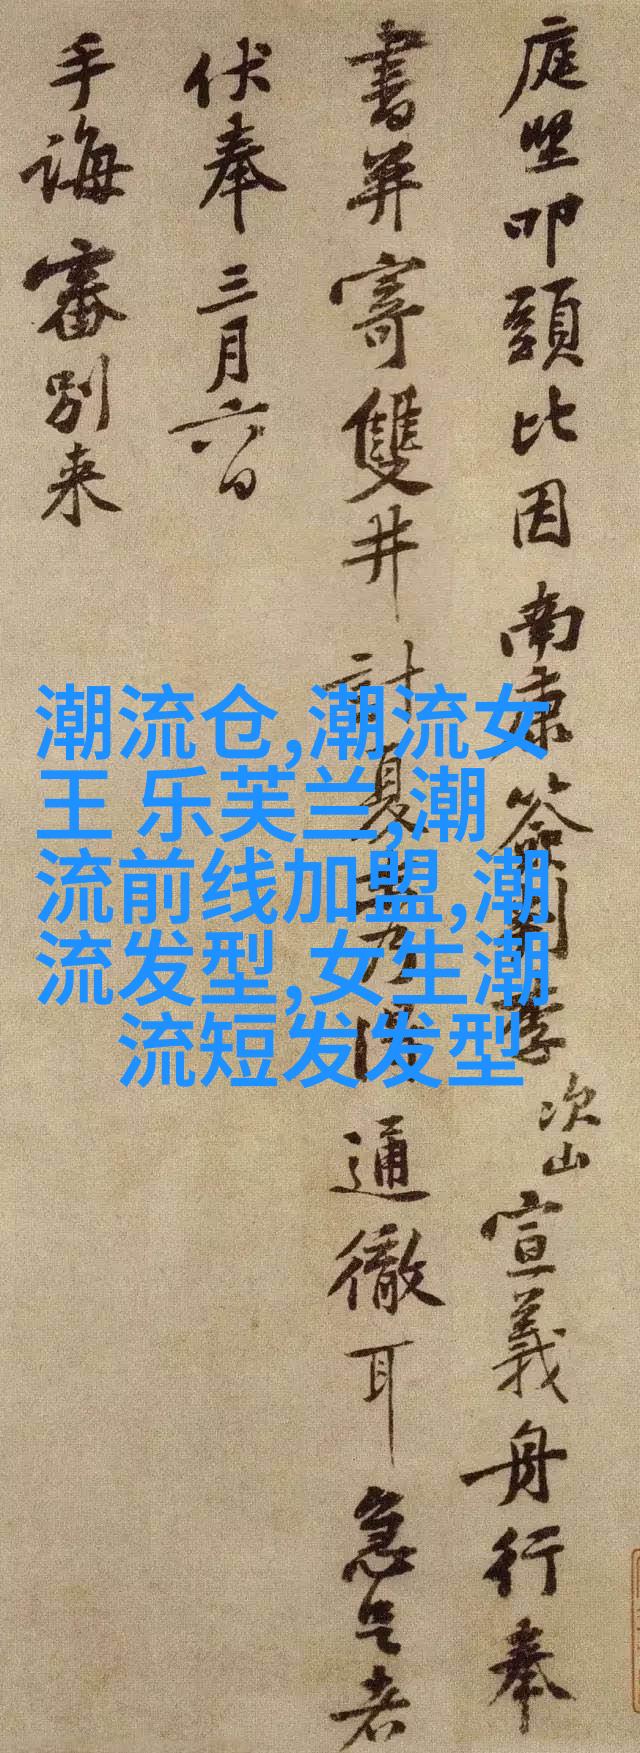 庭堅叩頭比因南康簽判李次山宣義舟行奉
書并寄雙井計夏末乃得通徹耳急足者
伏奉三月六日
手誨審別来
潮流仓,潮流女
王 乐芙兰,潮
流前线加盟,潮
流发型,女生潮
流短发发型